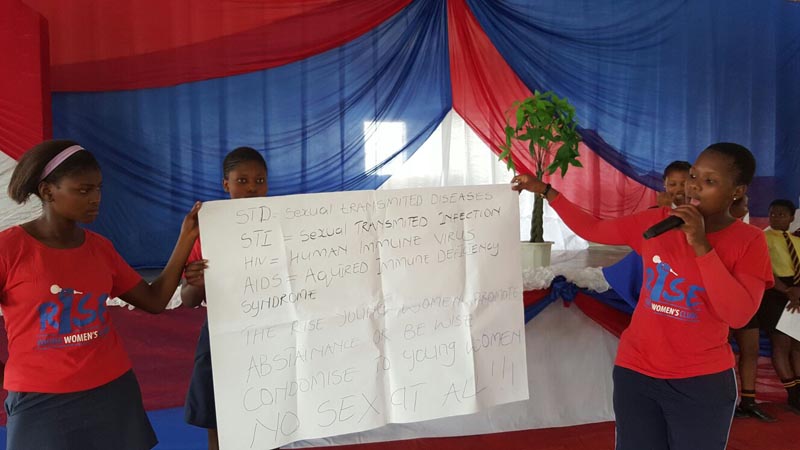 STD = Sexual TRANSMITED DISEASES
STI = Sexual TRANSMITED INFECTION
HIV = HUMAN IMMUNE VIRUS
AIDS = AQUIRED IMMUNE DEFICENCY
SYNDROME
THE RISE YOUNG WOMEN PROMOTE
ABSTAINANCE OR BE WISE
CONDOMISE TO YOUNG WOMEN
NO SEX AT AL!!!
RISE
WOMEN'S
RISE
WOMEN'S CLUBS